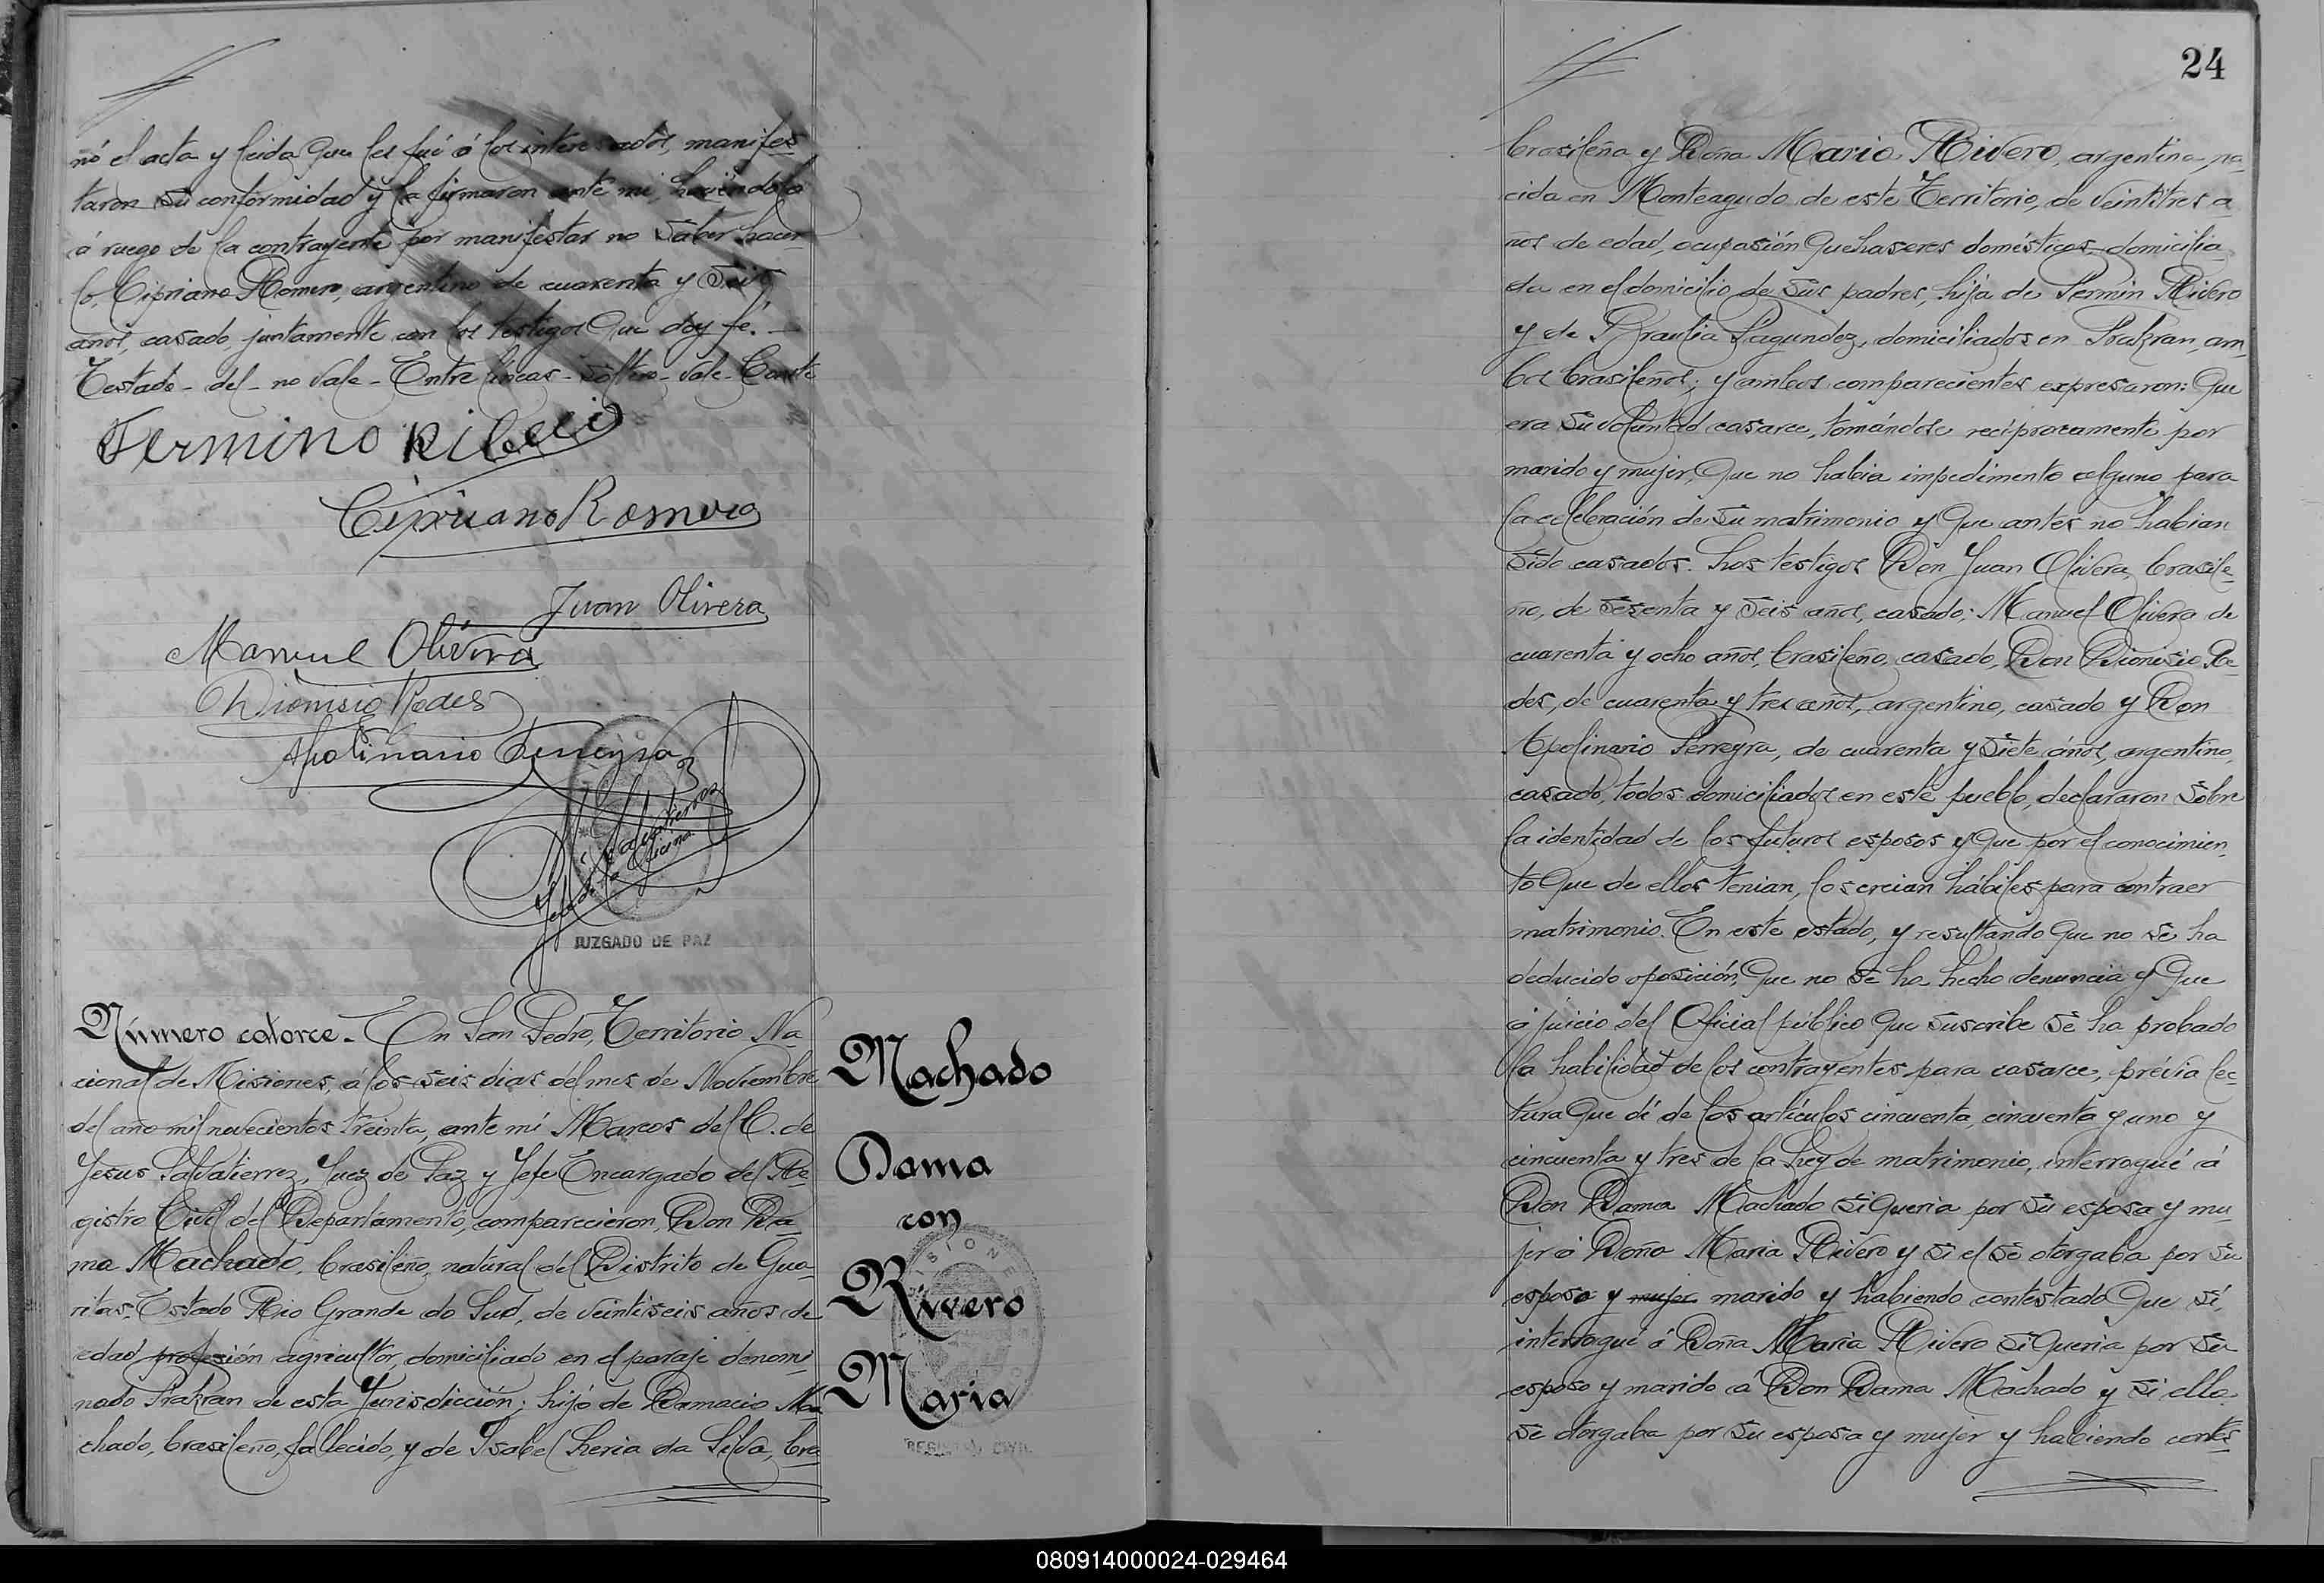 nó el acta y leida que les fué á los interesados, manifes
taron su conformidad y la firmaron ante mi, haciéndolo
á ruego de la contrayente por manifestar no saber hacer
lo, Cipriano Romero, argentino de cuarenta y seis
años, casado, juntamente con los testigos que doy fé.—
Testado - del - no vale - Entre líneas - soltero - vale - Conste
Fermino Ribeiro
Cipriano Romero
Juan Olivera
Manuel Olivera
Dionisio Redes
Apolinario Ferreyra
Jefe de la Oficina
JUZGADO DE PAZ
Número catorce - En San Pedro, Territorio Na
cional de Misiones, á los seis dias del mes de Noviembre
del año mil novecientos treinta, ante mí Marcos del C. de
Jesus Salvatierrez, Juez de Paz y Jefe Encargado del Re
gistro Civil del Departamento, comparecieron, Don Da
ma Machado, brasileño, natural del Distrito de Gua
ritas, Estado Rio Grande do Sud, de veintiseis años de
edad, profesión agricultor, domiciliado en el paraje denomi
nado Frakran de esta Jurisdicción; hijo de Damacio Ma
chado, brasileño, fallecido, y de Isabel Leria da Silva, bra
Machado
Dama
con
Rivero
Maria
MISIONES
REGISTRO CIVIL
24
brasileña y Doña Maria Rivero, argentina, na
cida en Monteagudo de este Territorio, de veintitres a
ños de edad, ocupasión quehaseres domésticos, domicilia
da en el domicilio de sus padres, hija de Fermin Rivero
y de Braulia Fagundez, domiciliados en Frakran, am
bos brasileños; y ambos comparecientes expresaron: Que
era su voluntad casarce, tomándose recíprocamente por
marido y mujer, que no habia impedimento alguno para
la celebración de su matrimonio y que antes no habian
sido casados. Los testigos Don Juan Olivera, brasile
ño, de sesenta y seis años, casado; Manuel Olivera de
cuarenta y ocho años, brasileño, casado, Don Dionisio Re
des, de cuarenta y tres años, argentino, casado y Don
Apolinario Ferreyra, de cuarenta y siete años, argentino,
casado, todos domiciliados en este pueblo, declararon sobre
la identidad de los futuros esposos y que por el conocimien
to que de ellos tenian, los creian hábiles para contraer
matrimonio. En este estado, y resultando que no se ha
deducido oposición, que no se ha hecho denuncia y que
á juicio del Oficial público que suscribe se ha probado
la habilidad de los contrayentes para casarce, prévia lec
tura que dí de los artículos cincuenta, cincuenta y uno y
cincuenta y tres de la Ley de matrimonio, interrogué á
Don Dama Machado si queria por su esposa y mu
jer á Doña Maria Rivero y si el se otorgaba por su
esposo y mujer marido y habiendo contestado que sí,
interrogué á Doña Maria Rivero si queria por su
esposo y marido á Don Dama Machado y si ella
se otorgaba por su esposa y mujer y habiendo contes
080914000024-029464